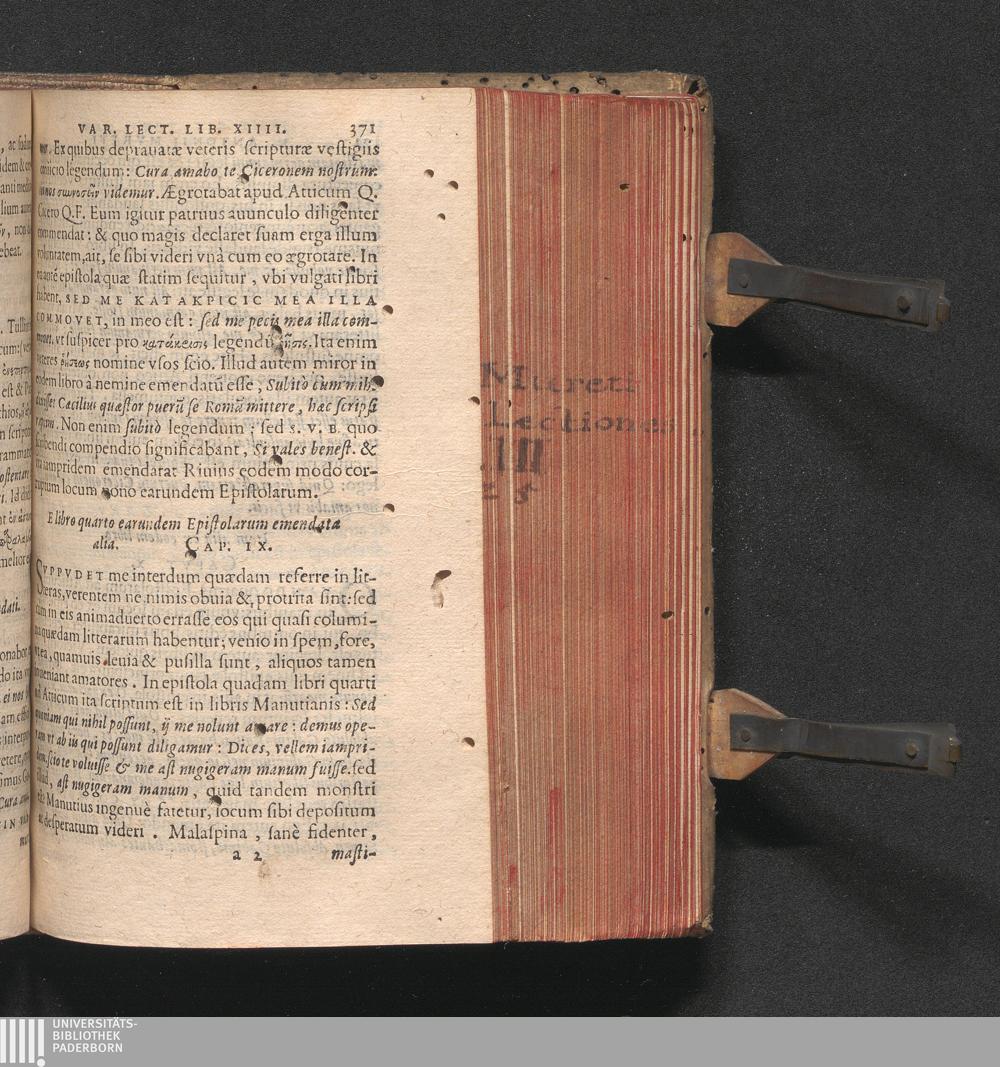 VAR. LECT. LIB. XIIII. 371
mur. Ex quibus deprauatæ veteris scripturæ vestigiis
coniicio legendum: Cura amabo te Ciceronem nostrum:
ei nos συννοσεῖν videmur. Ægrotabat apud Atticum Q.
Cicero Q.F. Eum igitur patruus auunculo diligenter
commendat: & quo magis declaret suam erga illum
voluntatem, ait, se sibi videri vnà cum eo ægrotare. In
ea autē epistola quæ statim sequitur, vbi vulgati libri
habent, SED ME KATAKPICIC MEA ILLA
COMMOVET, in meo est: sed me pecis mea illa com-
mouet. vt suspicer pro κατάκρισις legendū ῥῆσις. Ita enim
veteres ῥήσεως nomine vsos scio. Illud autem miror in
eodem libro à nemine emendatū esse, Subitò cum mihi
dixisset Cæcilius quæstor puerū se Romā mittere, hæc scripsi
raptim. Non enim subitò legendum: sed S. V. B. quo
scribendi compendio significabant, Si vales benest. &
ita iampridem emendarat Riuius eodem modo cor-
ruptum locum nono earundem Epistolarum.
E libro quarto earundem Epistolarum emendata
alia. CAP. IX.
SVPPVDET me interdum quædam referre in lit-
teras, verentem ne nimis obuia &, protrita sint: sed
cum in eis animaduerto errasse eos qui quasi columi-
na quædam litterarum habentur; venio in spem, fore,
vt ea, quamuis leuia & pusilla sunt, aliquos tamen
inueniant amatores. In epistola quadam libri quarti
ad Atticum ita scriptum est in libris Manutianis: Sed
quoniam qui nihil possunt, ij me nolunt amare: demus ope-
ram vt ab iis qui possunt diligamur: Dices, vellem iampri-
dem, scio te voluisse & me ast nugigeram manum fuisse. sed
illud, ast nugigeram manum, quid tandem monstri
est? Manutius ingenuè fatetur, locum sibi depositum
ac desperatum videri. Malaspina, sanè fidenter,
a 2 masti-
Mureti
Lectiones
III
25
UNIVERSITÄTS-
BIBLIOTHEK
PADERBORN